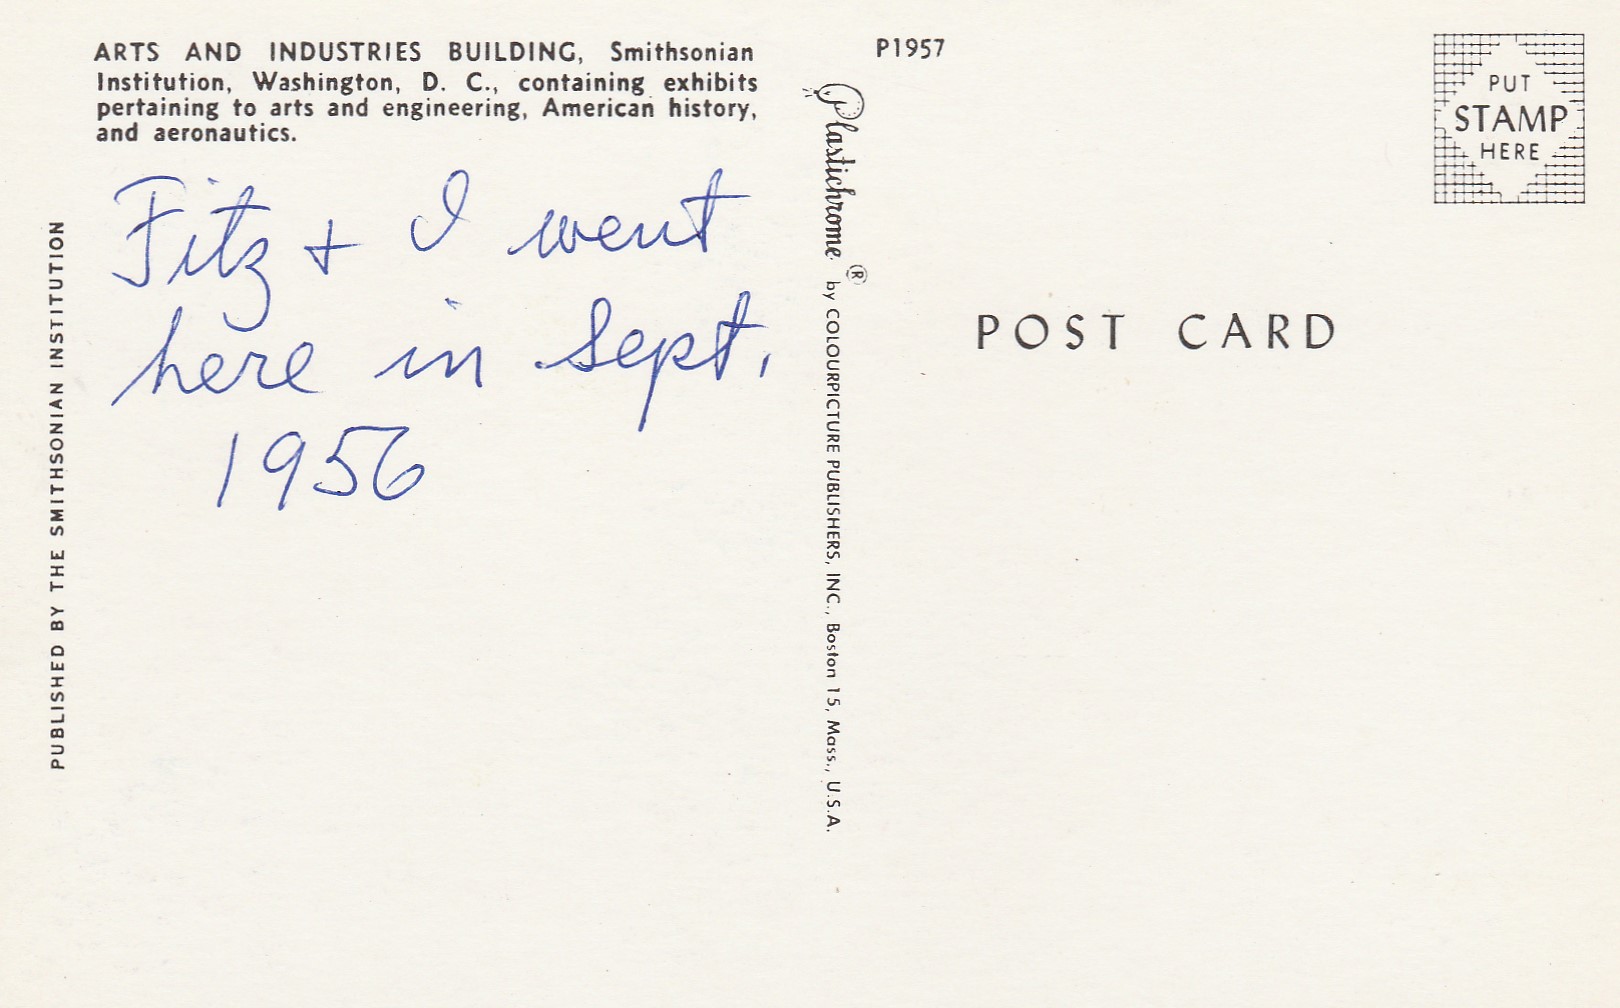 ARTS AND INDUSTRIES BUILDING, Smithsonian
Institution, Washington, D. C., containing exhibits
pertaining to arts and engineering, American history,
and aeronautics.
Fitz + I went
here in Sept.
1956
PUBLISHED BY THE SMITHSONIAN INSTITUTION
Plastichrome ® by COLOURPICTURE PUBLISHERS, INC., Boston 15, Mass., U.S.A.
P1957
PUT
STAMP
HERE
POST CARD